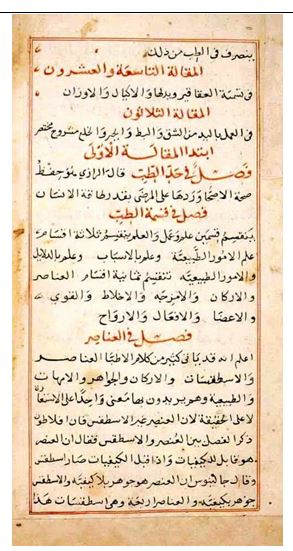 يتصرف فى الطب من ذلك
المقالة التاسعة والعشرون
فى تسمية العقاقير وبدلها والاكيال والاوزان
المقالة الثلاثون
فى العمل باليد من الشق والبط والجبر والخلع مشروح مختصر
ابتدا المقالة الاولى
فصل فى حد الطب قال الرازى هو حفظ
صحة الاصحا وردها على المرضى بقدر طاقة الانسان
فصل فى قسمة الطب
ينقسم قسمين علم وعمل والعلم ينقسم ثلاثة اقسام
علم الامور الطبيعية وعلم بالاسباب وعلم بالدلايل
والامور الطبيعيه تنقسم ثمانية اقسام العناصر
والاركان والامزجه والاخلاط والقوى
والاعضا والافعال والارواح
فصل فى العناصر
اعلم انه قد ياتى كثير من كلام الاطبا العناصر
والاسطقسات والاركان والجواهر والامهات
والطبيعة وهم يريدون بها معنى واحدا على الاتساع
لا على الحقيقة لان العنصر غير الاسطقس فان فلاطون
ذكر الفصل بين العنصر والاسطقس فقال ان العنصر
هو قابل للكيفيات واذا قبل الكيفيات صار اسطقس
وقال جالينوس ان العنصر هو جوهر بلا كيفيه والاسطقس
جوهر بكيفيه والعناصر اربعة وهى اسطقسات هذا